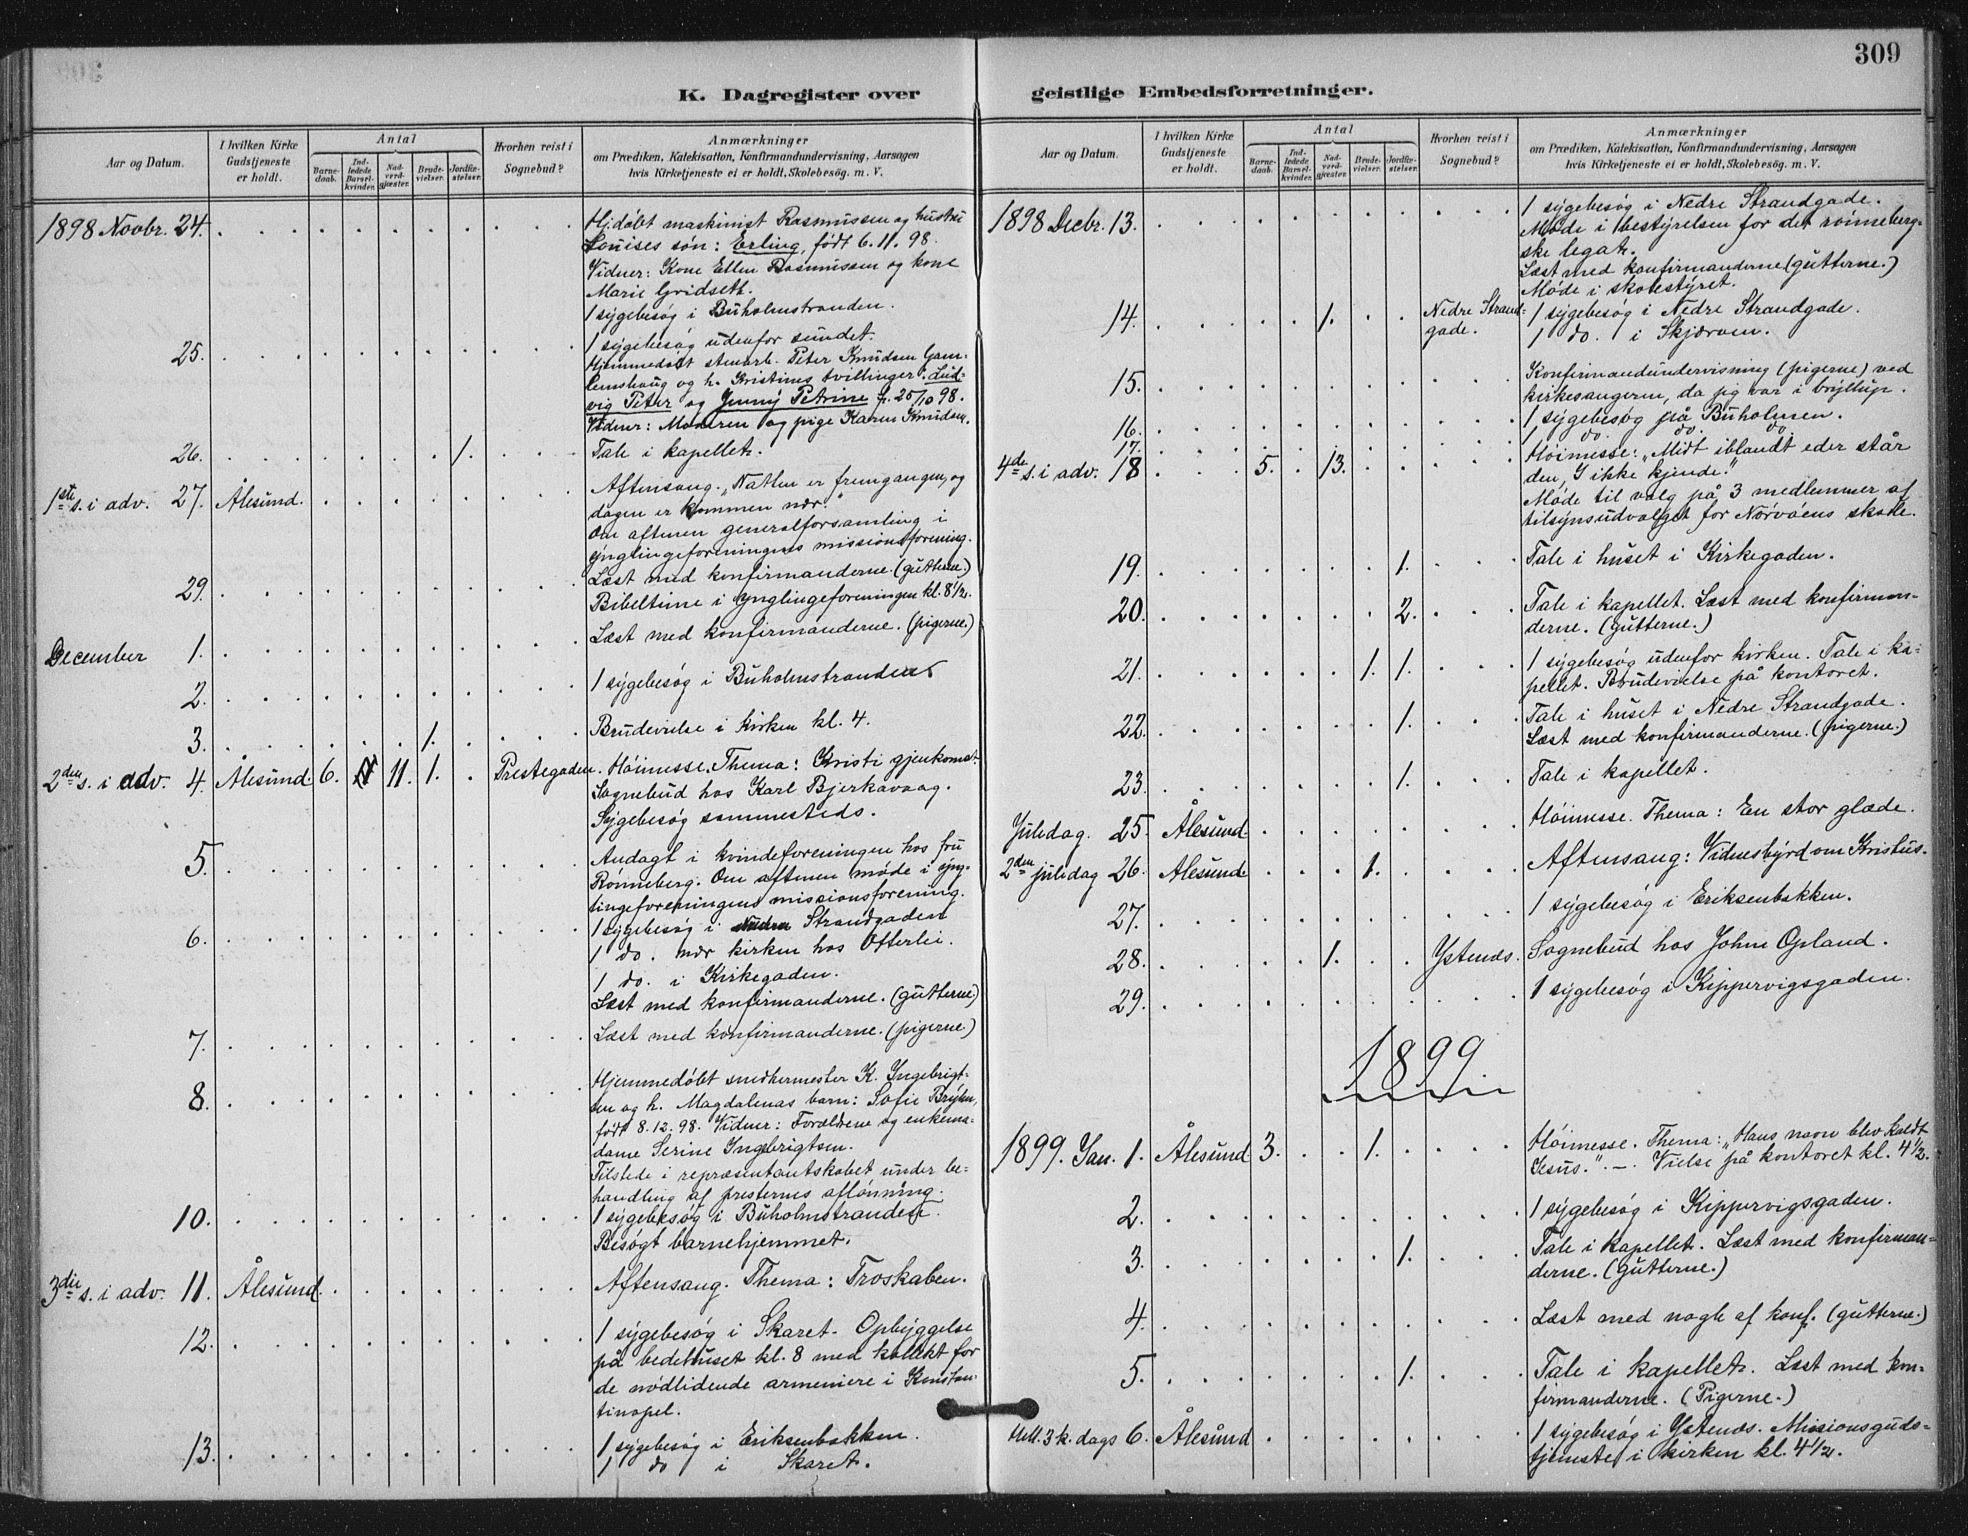 309
K. Dagregister over
Aar og Datum.
I hvilken Kirke Gudstjeneste er holdt.
Antal
Barne-daab.
Ind-ledede Barsel-kvinder.
Nad-verd-gjæster.
Brude-vielser.
Jordfæ-stelser.
Hvorhen reist i Sognebud?
Anmærkninger
om Prædiken, Katekisation, Konfirmandundervisning, Aarsagen
hvis Kirketjeneste ei er holdt, Skolebesøg. m. V.
1898 Novbr. 24. Hj.døbt maskinist Rasmussen og hustru
Louises søn: Erling, født 6.11.98.
Vidner: Kone Ellen Rasmussen og kone
Marie Gridseth.
1 sygebesøg i Buholmstranden.
25. 1 sygebesøg udenfor sundet.
Hjemmedøbt stenarb. Peter Knudsen Gam-
lemshaug og h. Kristines tvillinger: Lud-
vig Peter og Jenny Petrine f. 25/10 98.
Vidner: Moderen og pige Karen Knudsen.
26. 1. Tale i kapellet.
1ste s. i adv. 27. Ålesund. Aftensang. "Natten er fremgangen, og
dagen er kommen nær."
Om aftenen generalforsamling i
ynglingeforeningens missionsforening.
29. Læst med konfirmanderne. (gutterne.)
Bibeltime i ynglingeforeningen kl. 8 1/2.
December 1. Læst med konfirmanderne. (pigerne.)
2. 1 sygebesøg i Buholmstranden
3. 1. Brudevielse i kirken kl. 4.
2den s. i adv. 4. Ålesund. 6. 11. 1. Prestegaden. Høimesse. Thema: Kristi gjenkomst.
Sognebud hos Karl Bjerkavaag.
Sygebesøg sammesteds.
5. Andagt i kvindeforeningen hos fru
Rønneberg. Om aftenen møde i yng-
lingeforeningens missionsforening.
6. 1 sygebesøg i Strandgaden
1 do. nær kirken hos Otterlei.
1 do. i Kirkegaden.
Læst med konfirmanderne. (gutterne)
7. Læst med konfirmanderne. (pigerne)
8. Hjemmedøbt snedkermester K. Ingebrigt-
sen og h. Magdalenas barn: Sofie
født 8.12.98. Vidner: Forældrene og enkema-
dame Serine Ingebrigtsen.
Tilstede i repræsentantskabet under be-
handling af presternes aflønning.
10. 1 sygebesøg i Buholmstranden.
Besøgt barnehjemmet.
3die s. i adv. 11. Ålesund. Aftensang. Thema: Troskaben.
12. 1 sygebesøg i Skaret. Opbyggelse
på bedehuset kl. 8 med kollekt for
de nødlidende armeniere i Konstan-
tinopel.
13. 1 sygebesøg i Eriksenbakken.
1 do i Skaret.
geistlige Embedsforretninger.
Aar og Datum.
I hvilken Kirke Gudstjeneste er holdt.
Antal
Barne-daab.
Ind-ledede Barsel-kvinder.
Nad-verd-gjæster.
Brude-vielser.
Jordfæ-stelser.
Hvorhen reist i Sognebud?
Anmærkninger
om Prædiken, Katekisation, Konfirmandundervisning, Aarsagen
hvis Kirketjeneste ei er holdt, Skolebesøg. m. V.
1898 Decbr. 13. 1 sygebesøg i Nedre Strandgade.
Møde i bestyrelsen for det rønneberg-
ske legat.
Læst med konfirmanderne (gutterne.)
Møde i skolestyret.
14. 1. Nedre Strand-gade. 1 sygebesøg i Nedre Strandgade.
1 do. i Skjærven.
15. Konfirmandundervisning (pigerne) ved
kirkesangeren, da jeg var i bryllup.
16. 1 sygebesøg på Buholmen.
17. 1 do. do.
4de s. i adv. 18. 5. 13. Høimesse: "Midt iblandt eder står
den, I ikke kjende."
Møde til valg på 3 medlemmer af
tilsynsudvalget for Nørvøens skole.
19. 1. Tale i huset i Kirkegaden.
20. 2. Tale i kapellet. Læst med konfirman-
derne. (gutterne.)
21. 1. 1. 1 sygebesøg udenfor kirken. Tale i ka-
pellet. Brudevielse på kontoret.
22. 1. Tale i huset i Nedre Strandgade.
Læst med konfirmanderne. (pigerne.)
23. 1. Tale i kapellet.
Juledag. 25. Ålesund Høimesse. Thema: En stor glæde.
2den juledag 26. Ålesund 1. Aftensang: Vidnesbyrd om Kristus.
27. 1 sygebesøg i Eriksenbakken.
28. 1. Ystenes. Sognebud hos John Opland.
29. 1 sygebesøg i Kippervigsgaden.
1899
1899. Jan. 1. Ålesund 3. 1. Høimesse. Thema: "Hans navn blev kaldt
Jesus." — Vielse på kontoret kl. 4 1/2.
2. 1 sygebesøg i Kippervigsgaden.
3. 1. Tale i kapellet. Læst med konfirman-
derne. (Gutterne.)
4. Læst med nogle af konf. (gutterne.)
5. 1. Tale i kapellet. Læst med kon-
firmanderne. (Pigerne.)
Hell. 3 k. dags 6. Ålesund 1 sygebesøg i Ystenes. Missionsguds-
tjeneste i kirken kl. 4 1/2.